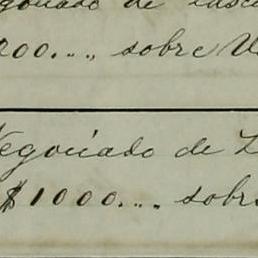 de
200..., sobre
Negociado de
$1000... sobre